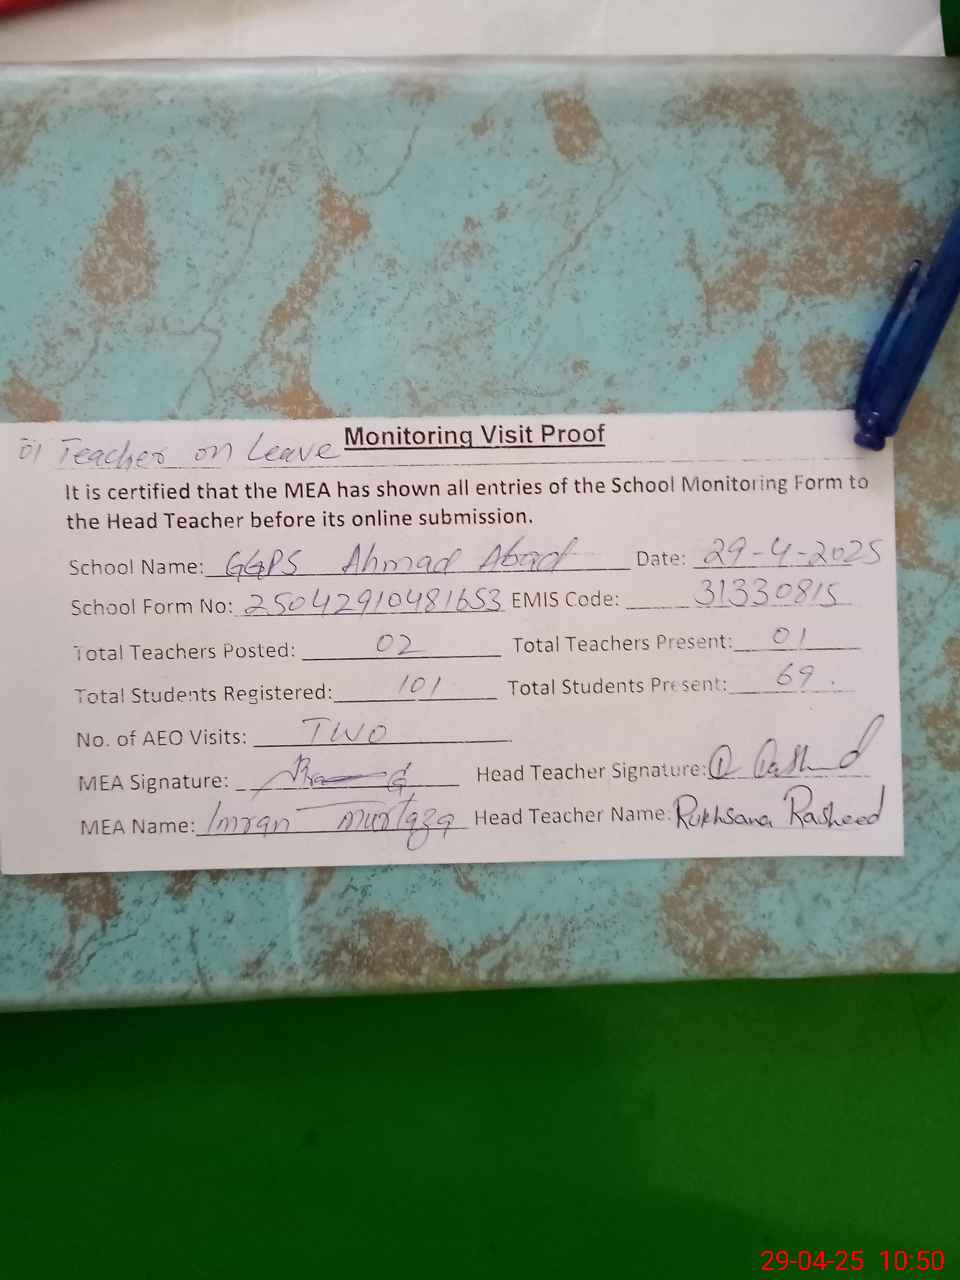 01 Teacher on Leave Monitoring Visit Proof
It is certified that the MEA has shown all entries of the School Monitoring Form to
the Head Teacher before its online submission.
School Name: GGPS Ahmad Abad Date: 29-4-2025
School Form No: 25042910481653 EMIS Code: 31330815
Total Teachers Posted: 02 Total Teachers Present: 01
Total Students Registered: 101 Total Students Present: 69.
No. of AEO Visits: TWO
MEA Signature: Head Teacher Signature:
MEA Name: Imran Murtaza Head Teacher Name: Rukhsana Rasheed
29-04-25 10:50